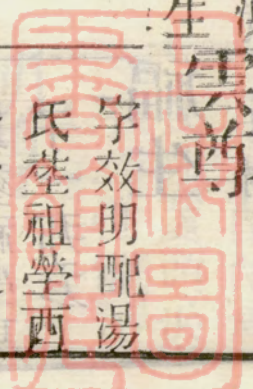 生
雲尊
字效明配湯
氏塟祖塋酉